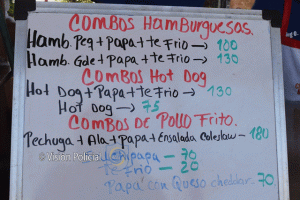 COMBOS HamBurguesas.
Hamb. Peq + Papa + te Frio → 100
Hamb. Gde + Papa + te Frio → 130
COMBOS Hot Dog
Hot Dog + Papa + te Frio → 130
Hot Dog → 75
COMBOS DE POllO FrIto.
Pechuga + Ala + Papa + Ensalada Coleslaw - 180
©Vision Policial
Papa - 70
te Frio - 20
Papa con Queso cheddar. 70